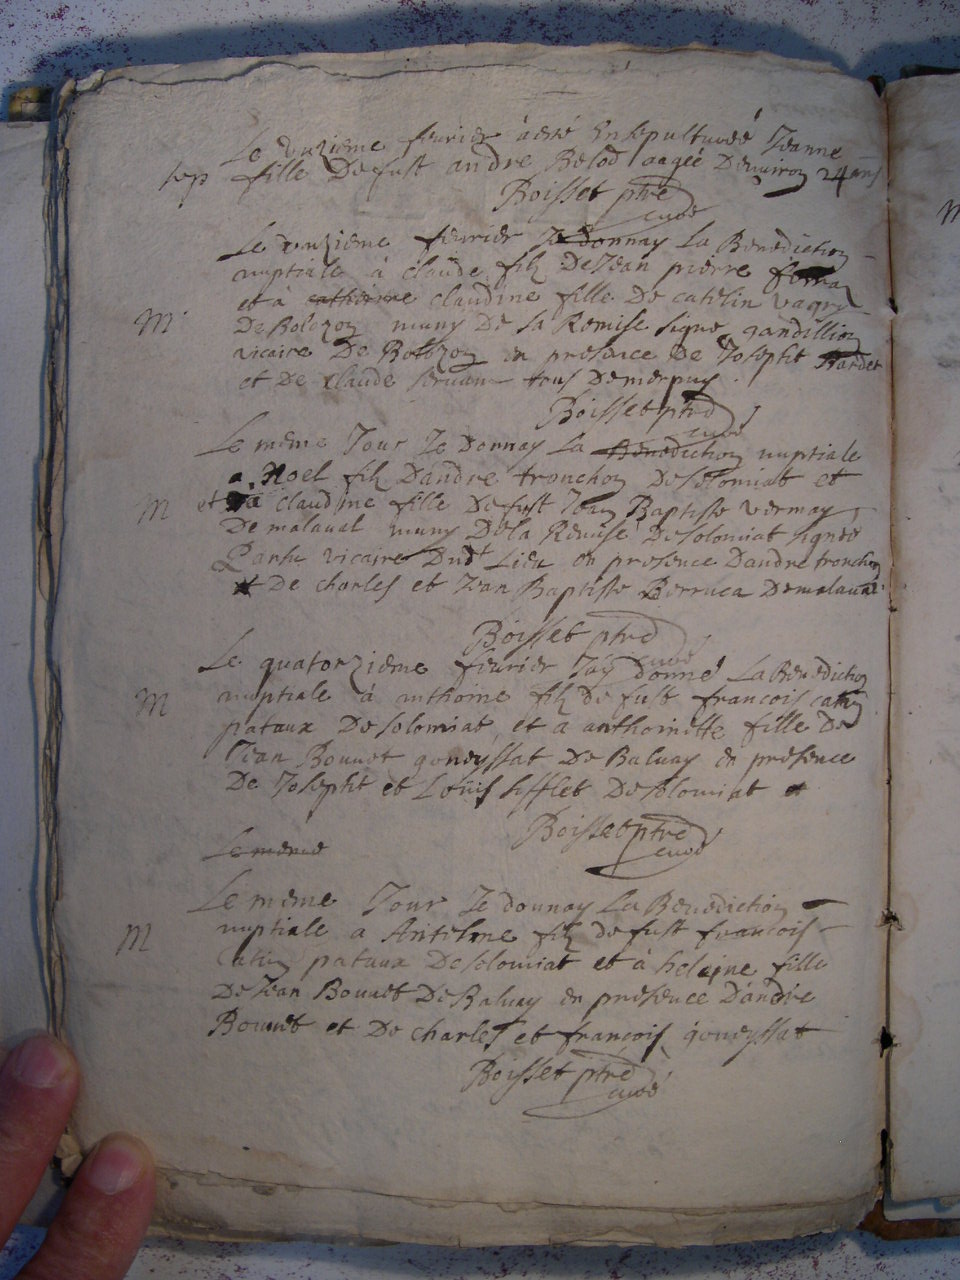 Le onzieme fevrier à esté Ensepulturéé Jeanne
sep fille De fust andre Belod aagée Denviron 24 ans
Boisset ptre
curé
Le onzieme fevrier Je donnay La Benediction
nuptiale à claude filz De Jean pierre
et à catherine claudine fille De catelin vagry
M De Bolozon muny De la Remise signé gandillion
vicaire De Bolozon en presence De Josepht Bardet
et De claude servant tous Demerpuy
Boisset ptre
curé
Le même Jour Je donnay La Benediction nuptiale
a Noel filz Dandre tronchon De solomiat et
M et à claudine fille De fust Jean Baptiste vermay
De malaval muny De la Remise De solomiat signéé
vicaire Dudt Lieu en presence Dandre tronchon
et De charles et Jean Baptiste Berruca De malaval
Boisset ptre
curé
Le quatorzieme fevrier Jay donné La Benediction
M nuptiale à anthoine filz de fust francois catin
pataux De solomiat et a anthoinette fille De
Jean Bouvet goneyssat De Balvay en presence
De Josepht et Loüis sifflet De solomiat
Boisset ptre
curé
Le meme
Le même Jour Je donnay La Benediction
M nuptiale a Antelme filz de fust francois
catin pataux De solomiat et à heleine fille
De Jean Bouvet De Balvay en presence D'andre
Bouvet et De charles et francois goneyssat
Boisset ptre
curé